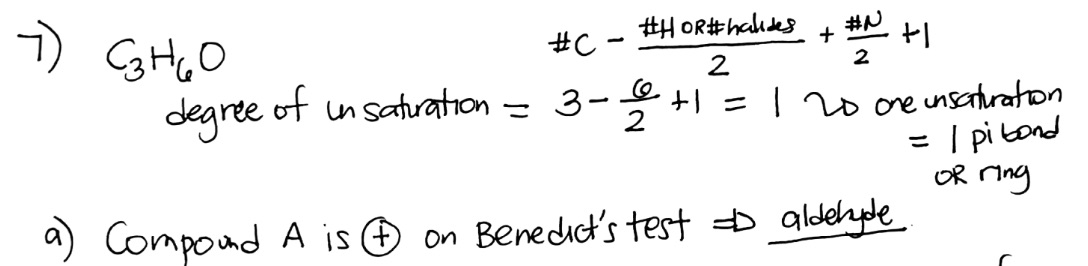 7) C₃H₆O #C - #H OR #halides / 2 + #N / 2 + 1
degree of unsaturation = 3 - 6/2 + 1 = 1 ⇝ one unsaturation
= 1 pi bond
OR ring
a) Compound A is ⊕ on Benedict's test ⇒ aldehyde